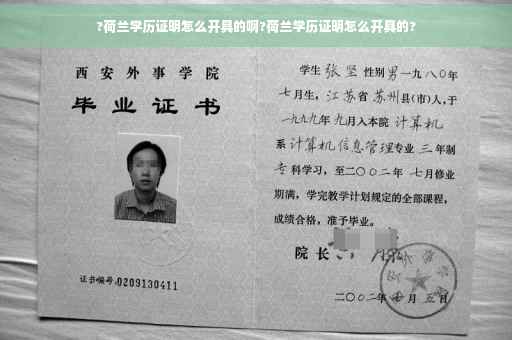 ?荷兰学历证明怎么开具的啊?荷兰学历证明怎么开具的?
西安外事学院
毕业证书
证书编号:0209130411
学生 张坚 性别 男 一九八〇年
七月生, 江苏省 苏州县(市)人,于
一九九九年 九月入本院 计算机
系 计算机信息管理专业 三 年制
专 科学习, 至二〇〇二年 七月修业
期满, 学完教学计划规定的全部课程,
成绩合格, 准予毕业。
院长
二〇〇二年 月 五日